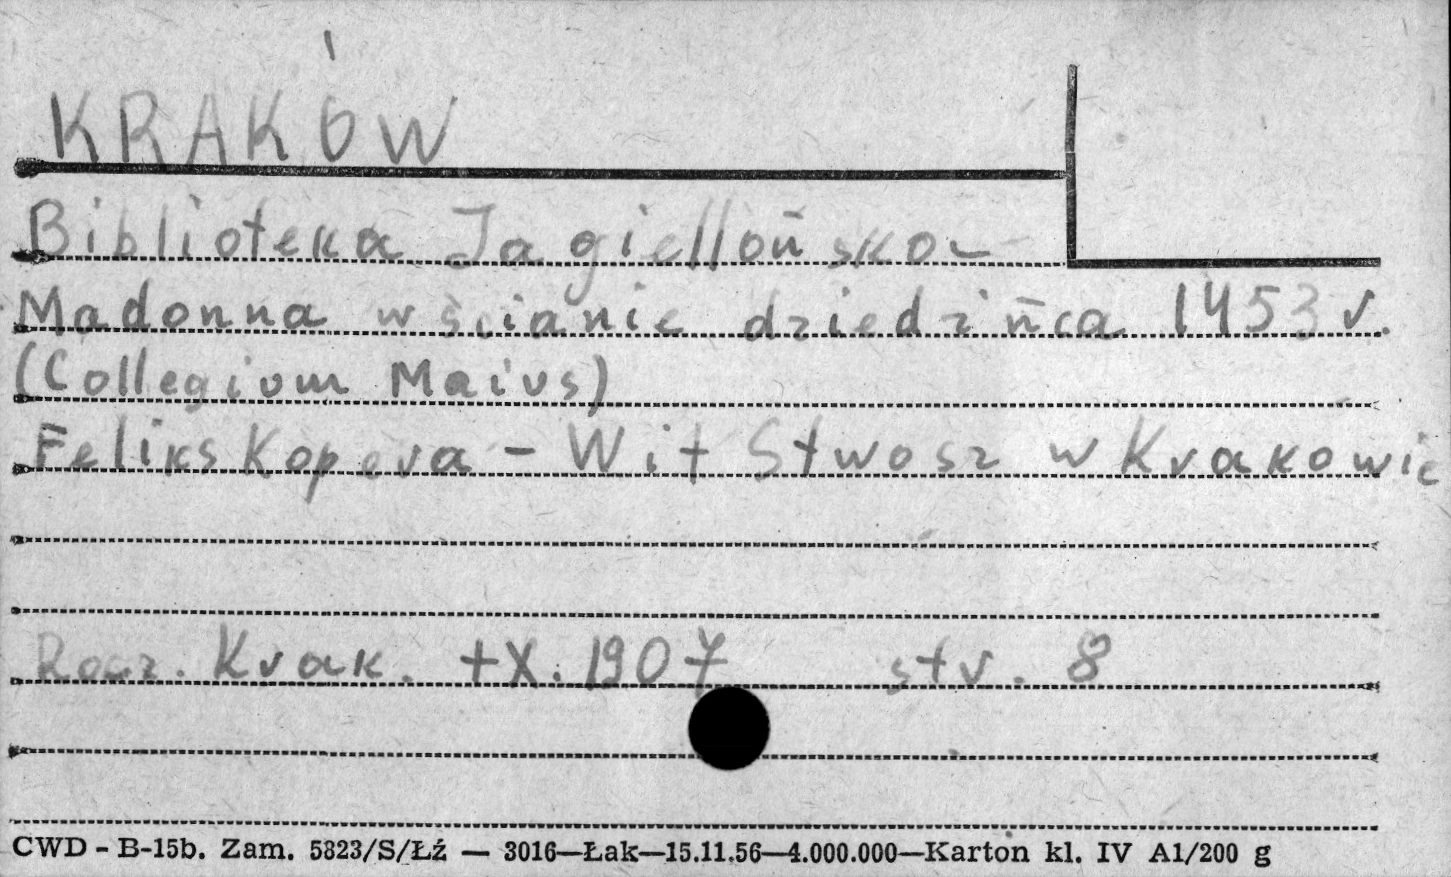 KRAKÓW
Biblioteka Jagiellońska
Madonna w ścianie dziedzińca 1453 r.
(Collegium Maius)
Feliks Kopera - Wit Stwosz w Krakowie
Rocz. Krak. tX. 1907 str. 8
CWD - B-15b. Zam. 5823/S/Łź — 3016—Łak—15.11.56—4.000.000—Karton kl. IV A1/200 g